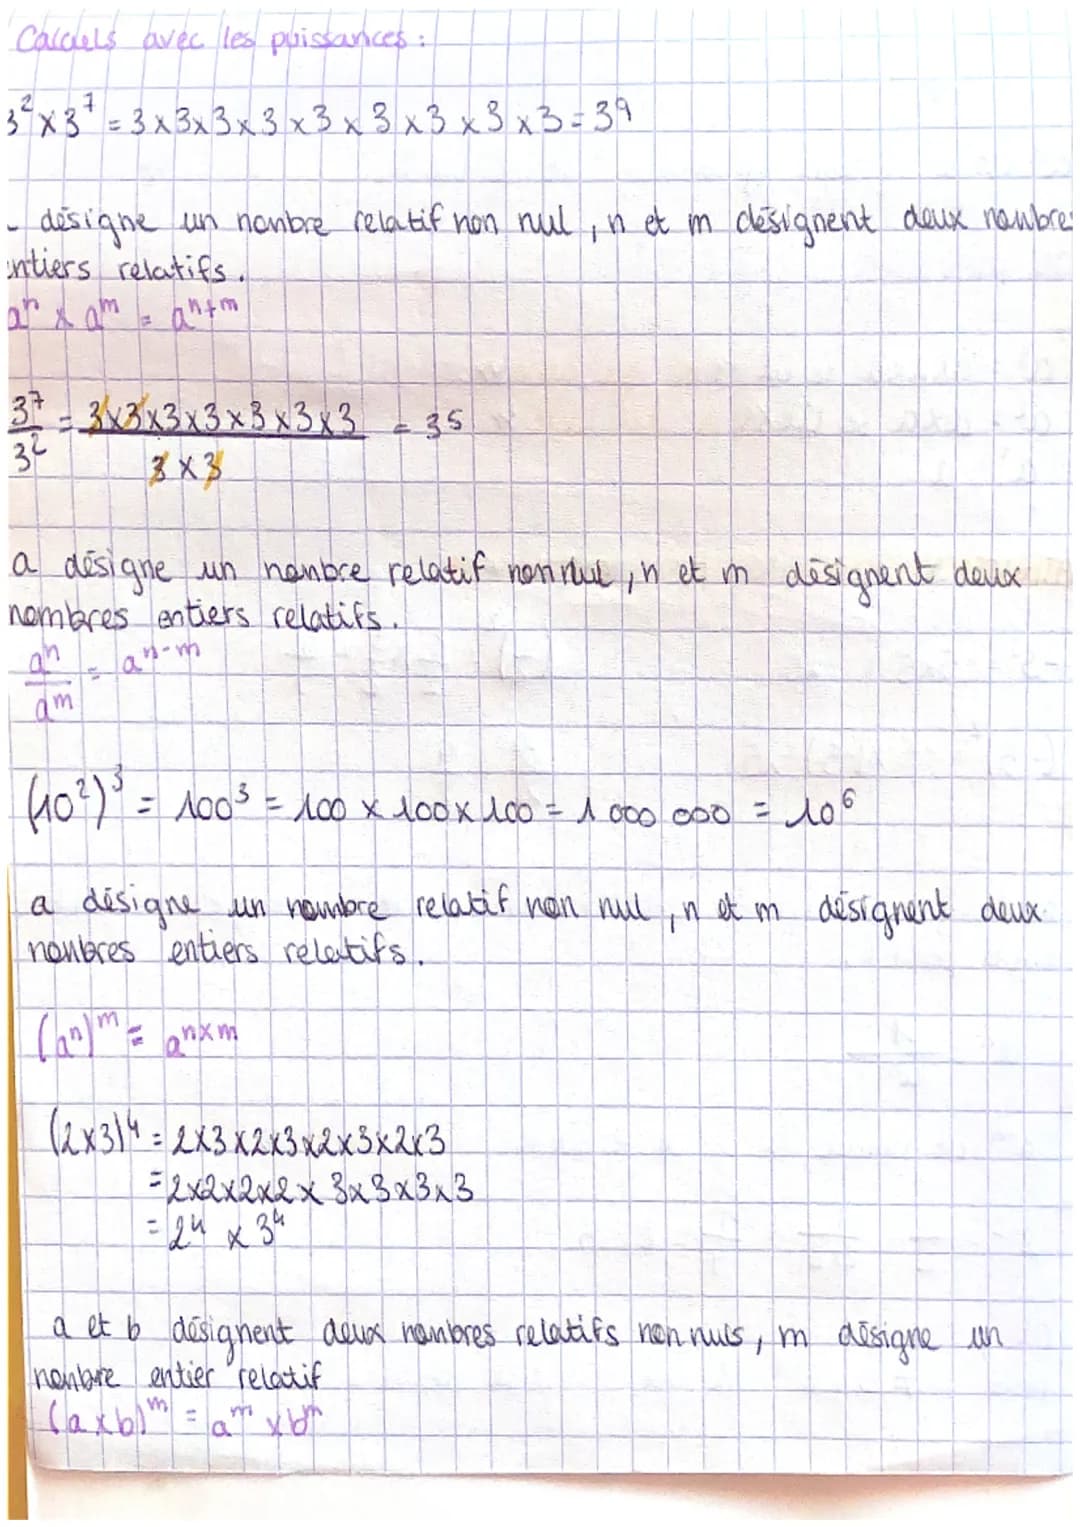 Calculs avec les puissances :
3² × 3⁷ = 3 × 3 × 3 × 3 × 3 × 3 × 3 × 3 × 3 = 3⁹
désigne un nombre relatif non nul, n et m désignent deux nombres
entiers relatifs.
aⁿ × aᵐ = aⁿ⁺ᵐ
3⁷/3² = 3×3×3×3×3×3×3/3×3 = 3⁵
a désigne un nombre relatif non nul, n et m désignent deux
nombres entiers relatifs.
aⁿ/aᵐ = aⁿ⁻ᵐ
(10²)³ = 100³ = 100 × 100 × 100 = 1 000 000 = 10⁶
a désigne un nombre relatif non nul, n et m désignent deux
nombres entiers relatifs.
(aⁿ)ᵐ = aⁿˣᵐ
(2×3)⁴ = 2×3×2×3×2×3×2×3
= 2×2×2×2 × 3×3×3×3
= 2⁴ × 3⁴
a et b désignent deux nombres relatifs non nuls, m désigne un
nombre entier relatif
(a×b)ᵐ = aᵐ × bᵐ